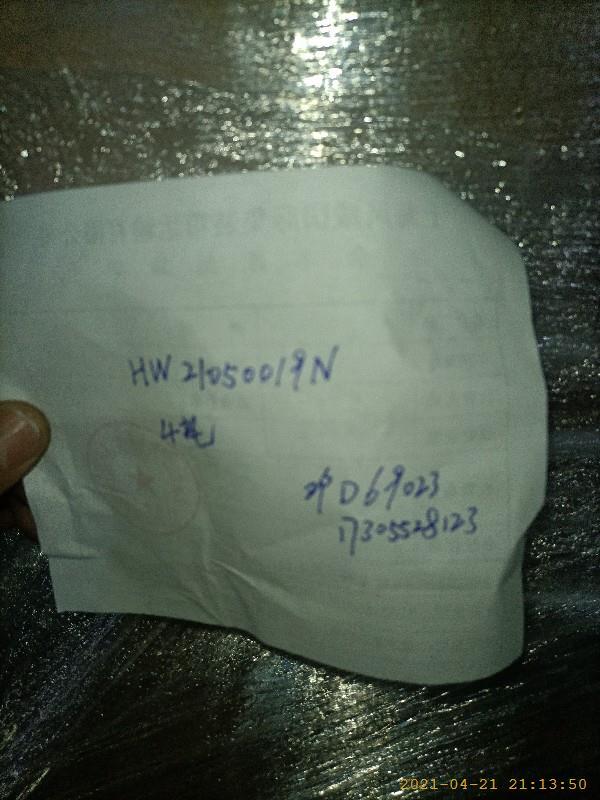 HW21050019N
4托
沪D69023
17305528123
2021-04-21 21:13:50